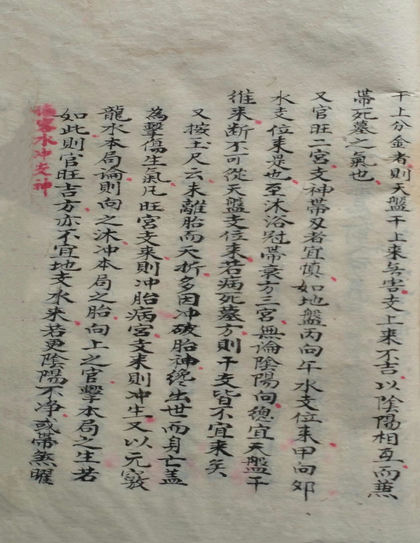 干上分金者則天盤干上来無害支上来不吉以陰陽相亙而兼
帶死墓之氣也
又官旺二宮支神帶刃者宜慎如地盤丙向午水支位来甲向夘
水支位来是也至沐浴冠帶衰方三宮無倫陰陽向總宜天盤干
維来断不可從天盤支位来若病死墓方則干支皆不宜来矣
又按玉尺云未離胎而夭折多因冲破胎神纔出世而身亡盖
為擊傷生氣凡旺宮支来則冲胎病宮支来則冲生又以元竅
龍水本局論則向之沐冲本局之胎向上之官擊本局之生若
如此則官旺吉方亦不宜地支水来若更陰陽不净或帶煞曜
水冲支神